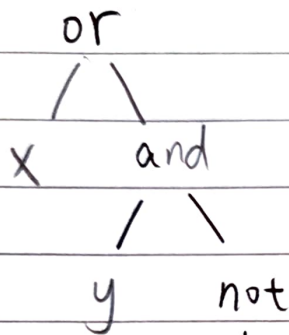 or
x and
y not